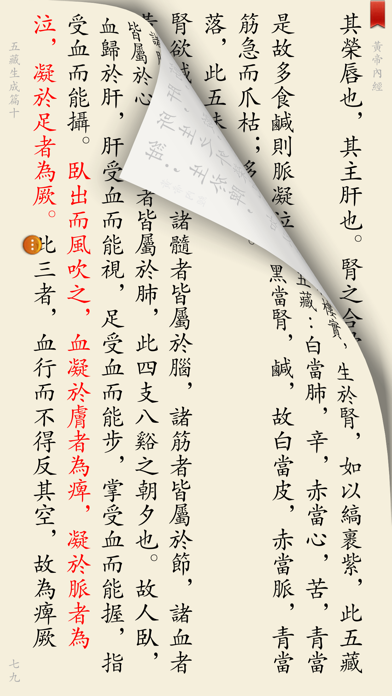 黃帝內經
其榮唇也，其主肝也。腎之合
生於腎，如以縞裹紫，此五藏
是故多食鹹則脈凝泣
五藏：白當肺，辛，赤當心，苦，青當
筋急而爪枯；多
黑當腎，鹹，故白當皮，赤當脈，青當
落，此五
腎欲鹹
諸髓者皆屬於腦，諸筋者皆屬於節，諸血者
皆屬於心
者皆屬於肺，此四支八谿之朝夕也。故人臥，
血歸於肝，肝受血而能視，足受血而能步，掌受血而能握，指
受血而能攝。臥出而風吹之，血凝於膚者為痺，凝於脈者為
泣，凝於足者為厥。此三者，血行而不得反其空，故為痺厥
五藏生成篇十
七九